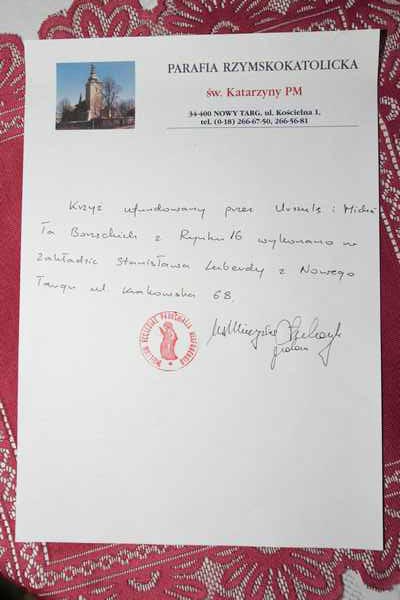 PARAFIA RZYMSKOKATOLICKA
św. Katarzyny PM
34-400 NOWY TARG, ul. Kościelna 1,
tel. (0-18) 266-67-50, 266-56-81
Krzyż ufundowany przez Urszulę i Micha
ła Borzęckich z Rynku 16 wykonano w
Zakładzie Stanisława Luberdy z Nowego
Targu ul. Krakowska 68.